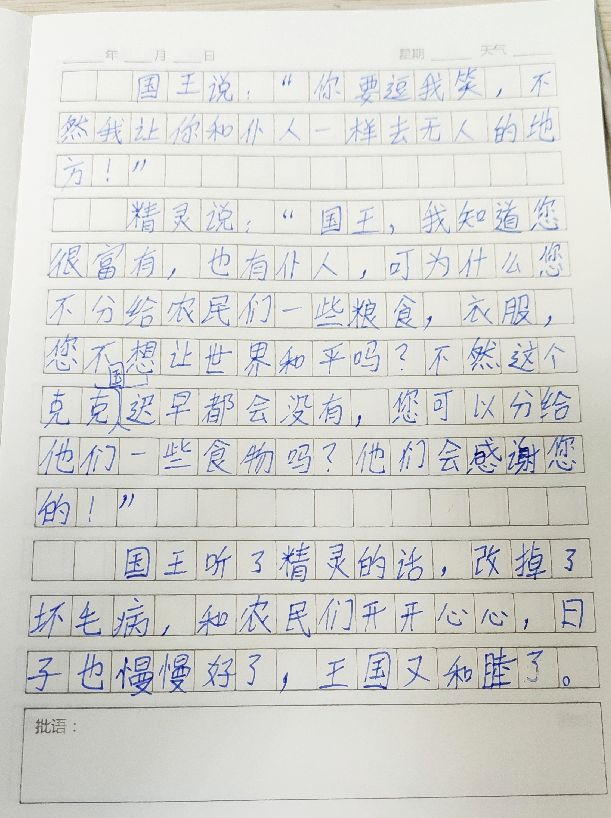 年 月 日 星期 天气
国王说：“你要逗我笑，不
然我让你和仆人一样去无人的地
方！”
精灵说：“国王，我知道您
很富有，也有仆人，可为什么您
不分给农民们一些粮食，衣服，
您不想让世界和平吗？不然这个
克克国迟早都会没有，您可以分给
他们一些食物吗？他们会感谢您
的！”
国王听了精灵的话，改掉了
坏毛病，和农民们开开心心，日
子也慢慢好了，王国又和睦了。
批语：